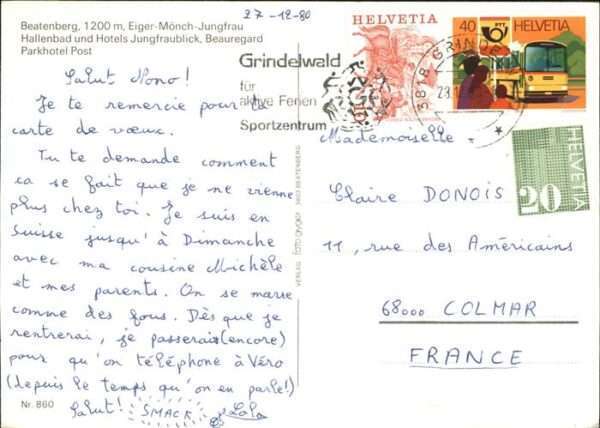 27-12-80
Beatenberg, 1200 m, Eiger-Mönch-Jungfrau
Hallenbad und Hotels Jungfraublick, Beauregard
Parkhotel Post
Salut Nono!
Je te remercie pour ta
carte de vœux.
Tu te demande comment
ca se fait que je ne vienne
plus chez toi. Je suis en
Suisse jusqu'à Dimanche
avec ma cousine Michèle
et mes parents. On se marre
comme des fous. Dès que je
rentrerai, je passerais (encore)
pour qu'on téléphone à Véro
(depuis le temps qu'on en parle!)
Salut! SMACK Lola
Nr. 860
HELVETIA
40 PTT HELVETIA
Grindelwald
für
aktive Ferien
Sportzentrum
3818 GRINDE
HELVETIA
20
VERLAG
3803 BEATENBERG
Mademoiselle
Claire DONOIS
11, rue des Américains
68000 COLMAR
FRANCE